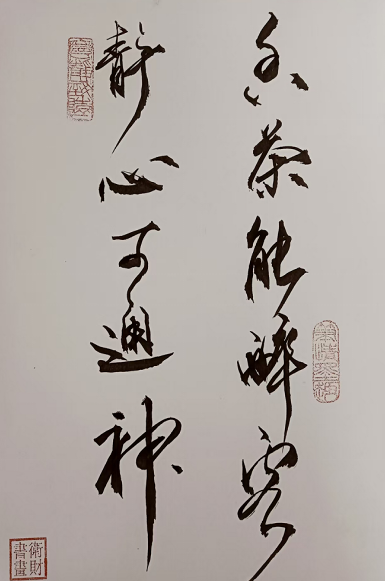 香茶能醉客
静心可通神